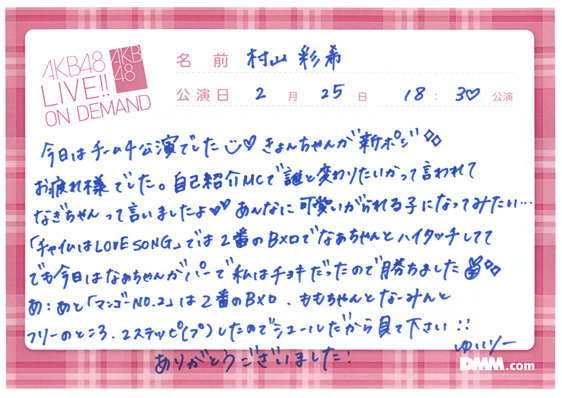 AKB48
LIVE!!
ON DEMAND
AKB
48
名前 村山彩希
公演日 2月25日 18:30公演
今日はチーム4公演でした♡ きょんちゃんが新ポジ
お疲れ様でした。自己紹介MCで誰と変わりたいかって言われて
なぎちゃんって言いましたよ♡♡ あんなに可愛いがられる子になってみたい…
「チャイムはLOVE SONG」では2番のBメロでなぁちゃんとハイタッチしてて
でも今日はなぁちゃんがパーで私はチョキだったので勝ちました
あ!あと「マンゴNO.2」は2番のBメロ、ももちゃんとなーみんと
フリーのところ、2ステッピ(プ)したのでシュールだから見て下さい!!
ありがとうございました!
ゆいりー
DMM.com